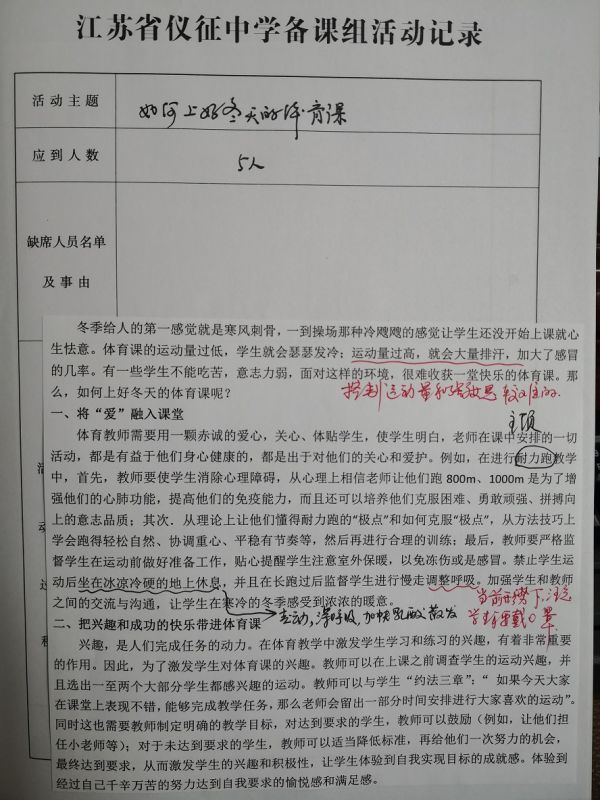 江苏省仪征中学备课组活动记录
活动主题
如何上好冬天的体育课
应到人数
5人
缺席人员名单
及事由
冬季给人的第一感觉就是寒风刺骨，一到操场那种冷飕飕的感觉让学生还没开始上课就心
生怯意。体育课的运动量过低，学生就会瑟瑟发冷；运动量过高，就会大量排汗，加大了感冒
的几率。有一些学生不能吃苦，意志力弱，面对这样的环境，很难收获一堂快乐的体育课。那
么，如何上好冬天的体育课呢？
控制运动量和强度是
一、将“爱”融入课堂
体育教师需要用一颗赤诚的爱心，关心、体贴学生，使学生明白，老师在课中安排的一切
活动，都是有益于他们身心健康的，都是出于对他们的关心和爱护。例如，在进行耐力跑教学
中，首先，教师要使学生消除心理障碍，从心理上相信老师让他们跑 800m、1000m 是为了增
强他们的心肺功能，提高他们的免疫能力，而且还可以培养他们克服困难、勇敢顽强、拼搏向
上的意志品质；其次．从理论上让他们懂得耐力跑的“极点”和如何克服“极点”，从方法技巧上
学会跑得轻松自然、协调重心、平稳有节奏等，然后再进行合理的训练；最后，教师要严格监
督学生在运动前做好准备工作，贴心提醒学生注意室外保暖，以免冻伤或是感冒。禁止学生运
动后坐在冰凉冷硬的地上休息，并且在长跑过后监督学生进行慢走调整呼吸。加强学生和教师
之间的交流与沟通，让学生在寒冷的冬季感受到浓浓的暖意。
当前形势下注意
走动，深呼吸，加快乳酸散发
学生戴口罩
二、把兴趣和成功的快乐带进体育课
兴趣，是人们完成任务的动力。在体育教学中激发学生学习和练习的兴趣，有着非常重要
的作用。因此，为了激发学生对体育课的兴趣。教师可以在上课之前调查学生的运动兴趣，并
且选出一至两个大部分学生都感兴趣的运动。教师可以与学生“约法三章”；“ 如果今天大家
在课堂上表现不错，能够完成教学任务，那么老师会留出一部分时间安排进行大家喜欢的运动”。
同时这也需要教师制定明确的教学目标，对达到要求的学生，教师可以鼓励（例如，让他们担
任小老师等）；对于未达到要求的学生，教师可以适当降低标准，再给他们一次努力的机会，
最终达到要求，从而激发学生的兴趣和积极性，让学生体验到自我实现目标的成就感。体验到
经过自己千辛万苦的努力达到自我要求的愉悦感和满足感。